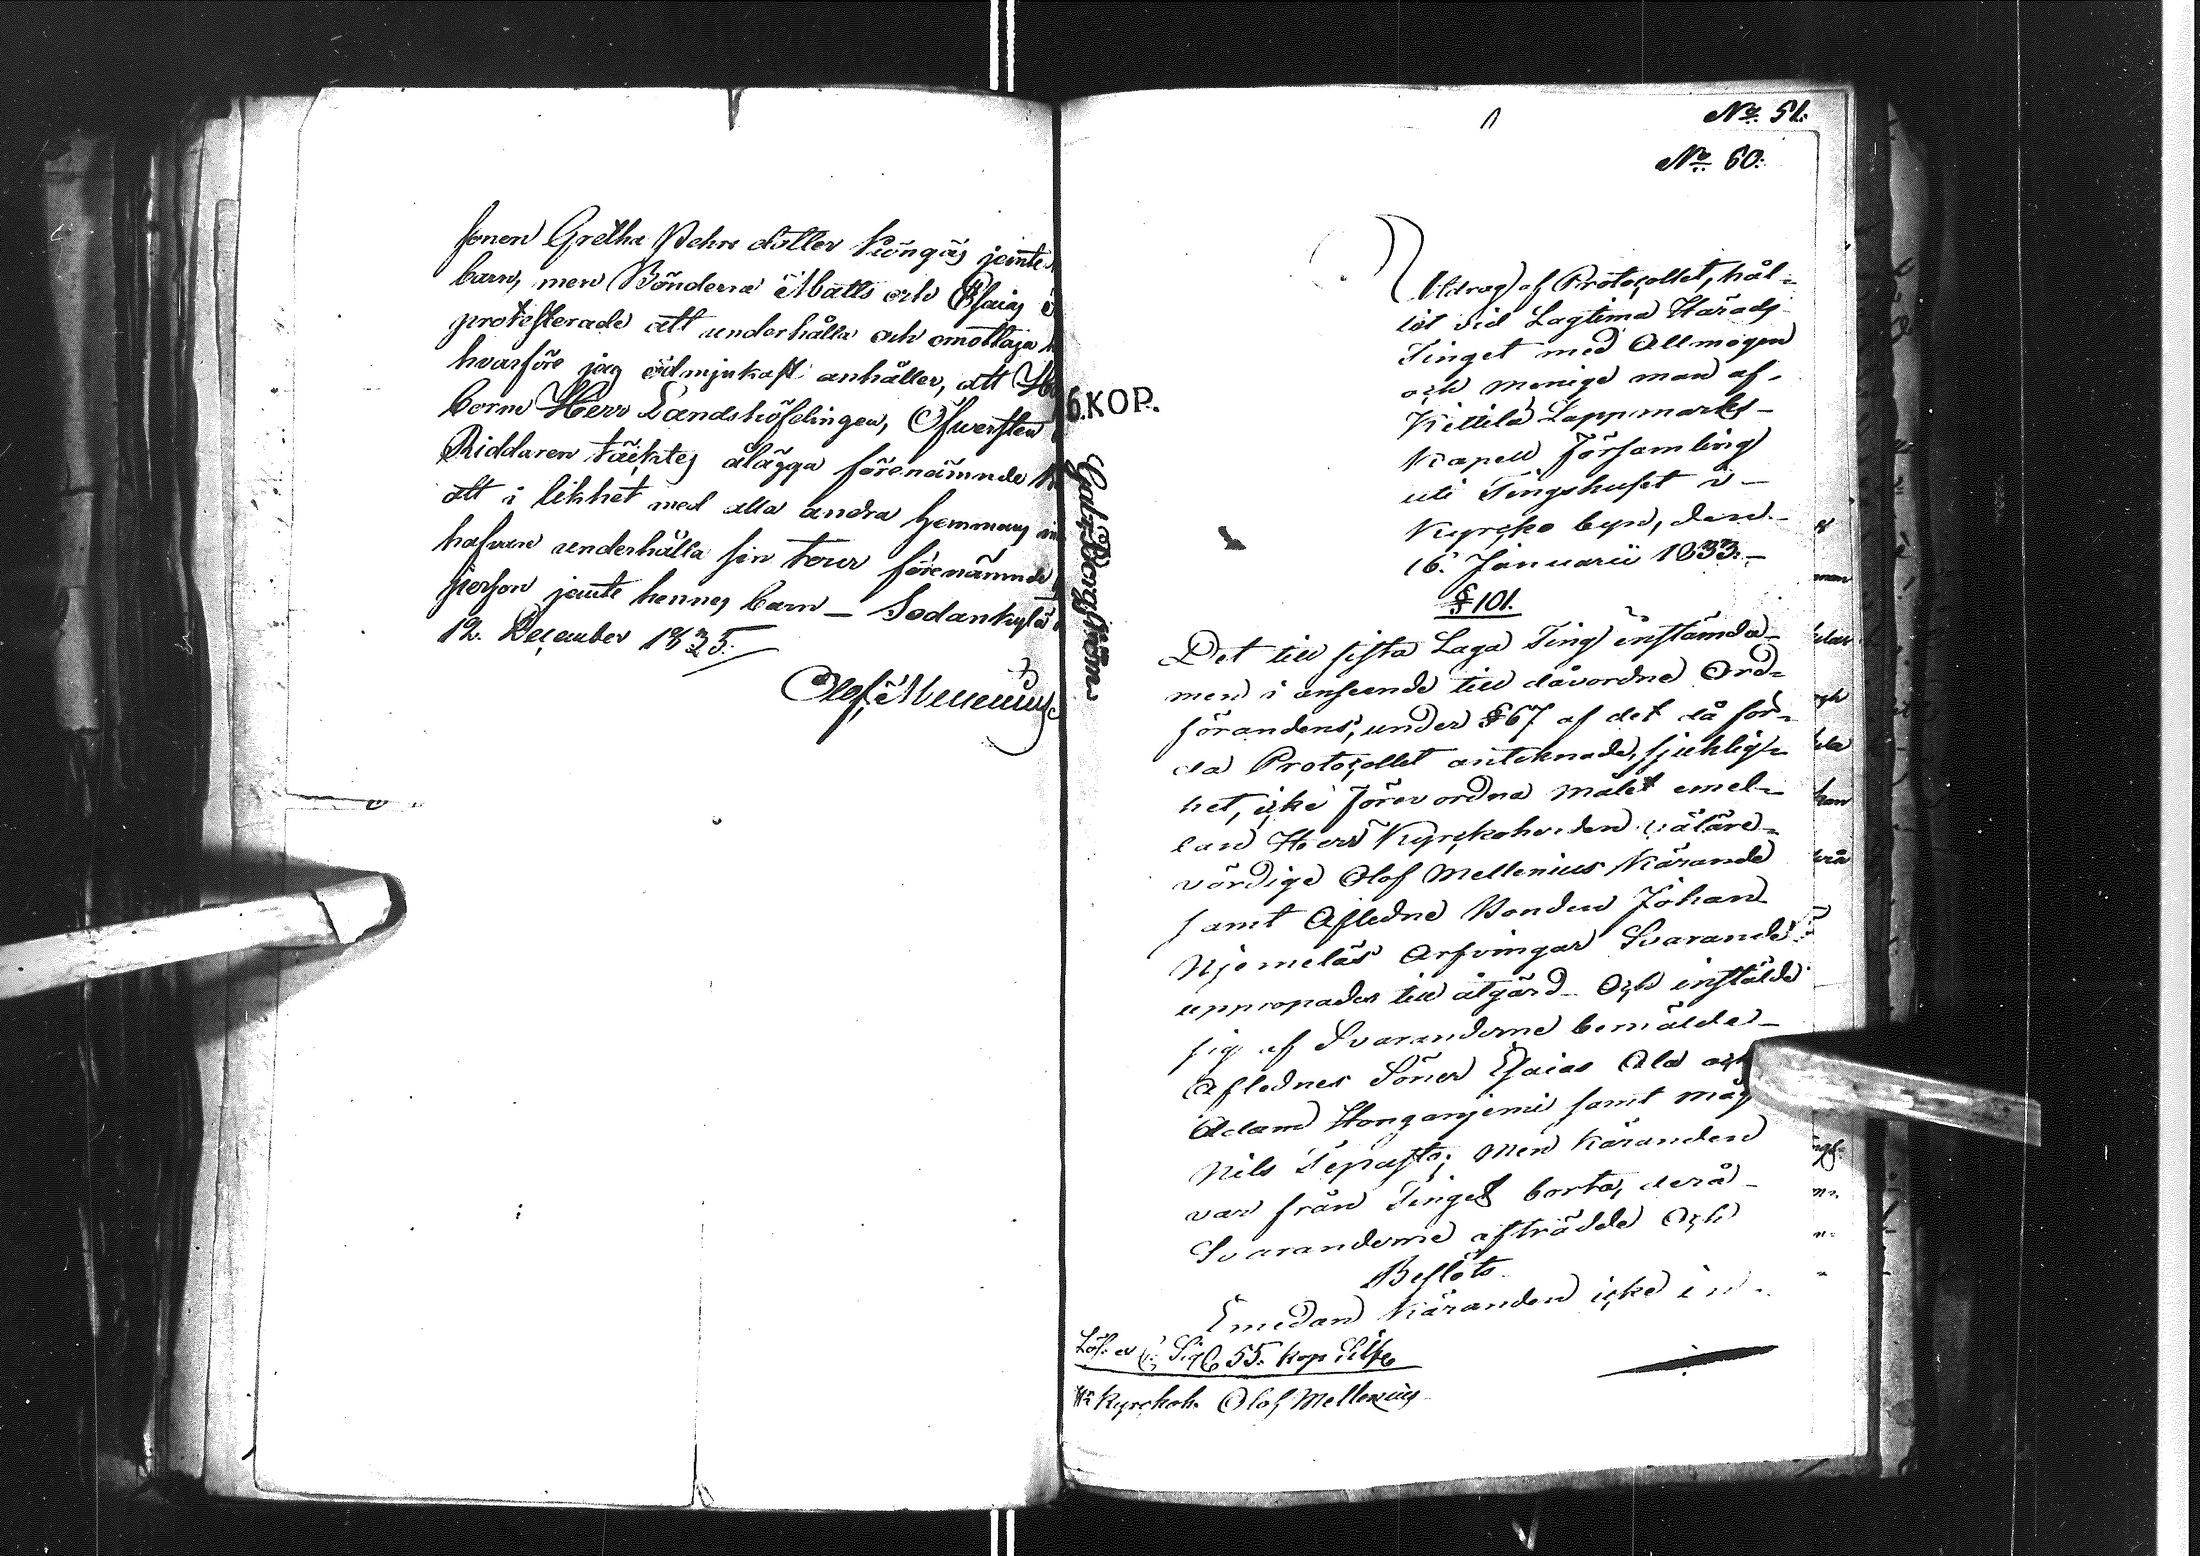 sonen Gretha Pehrs dotter Kiöngäs jemte
barn, men Bönderna Matts och Esaias
protesterade att underhålla och emottaga
hvarföre jag ödmjukast anhåller, att
borne Herr Landshöfdingen, Öfwersten
Riddaren täcktes ålägga förenämnde
att i likhet med alla andra hemmans
hafvare underhålla sin tour förenämnde
person jemte hennes barn – Sodankylä
12. December 1835.
Olof Mellenius
6.KOP.
Bergström
No. 51.
No. 60.
Utdrag af Protocollet, hål-
lit vid Lagtima Härads
Tinget med Allmogen
och menige man af
Kittilä Lappmarks-
Kapell Församling
uti Tingshuset i
Kyrcko byn, den
16. Januarii 1833.
§ 101.
Det till sista Laga Ting instämda
men i anseende till dåvordne Ord-
förandens, under § 67 af det då för-
da Protocollet antecknade, sjuklig-
het, icke förevordna målet emel-
lan Herr Kyrckoherden väläre-
vördige Olof Mellenius Kärande
samt Aflidne Bonden Johan
Njemeläs Arfvingar Svarande
uppropades till åtgärd. Och instälde
sig af Svaranderne bemälde
Aflidnes Söner Esaias Ala och
Adam Honganjemi samt måg
Nils Tepasto; men Käranden
var från Tinget borta, derå
Svaranderne afträdde Och
Beslöts.
Emedan Käranden icke in-
Lös. 55. kop Silf
Kyrckoh. Olof Mellenius